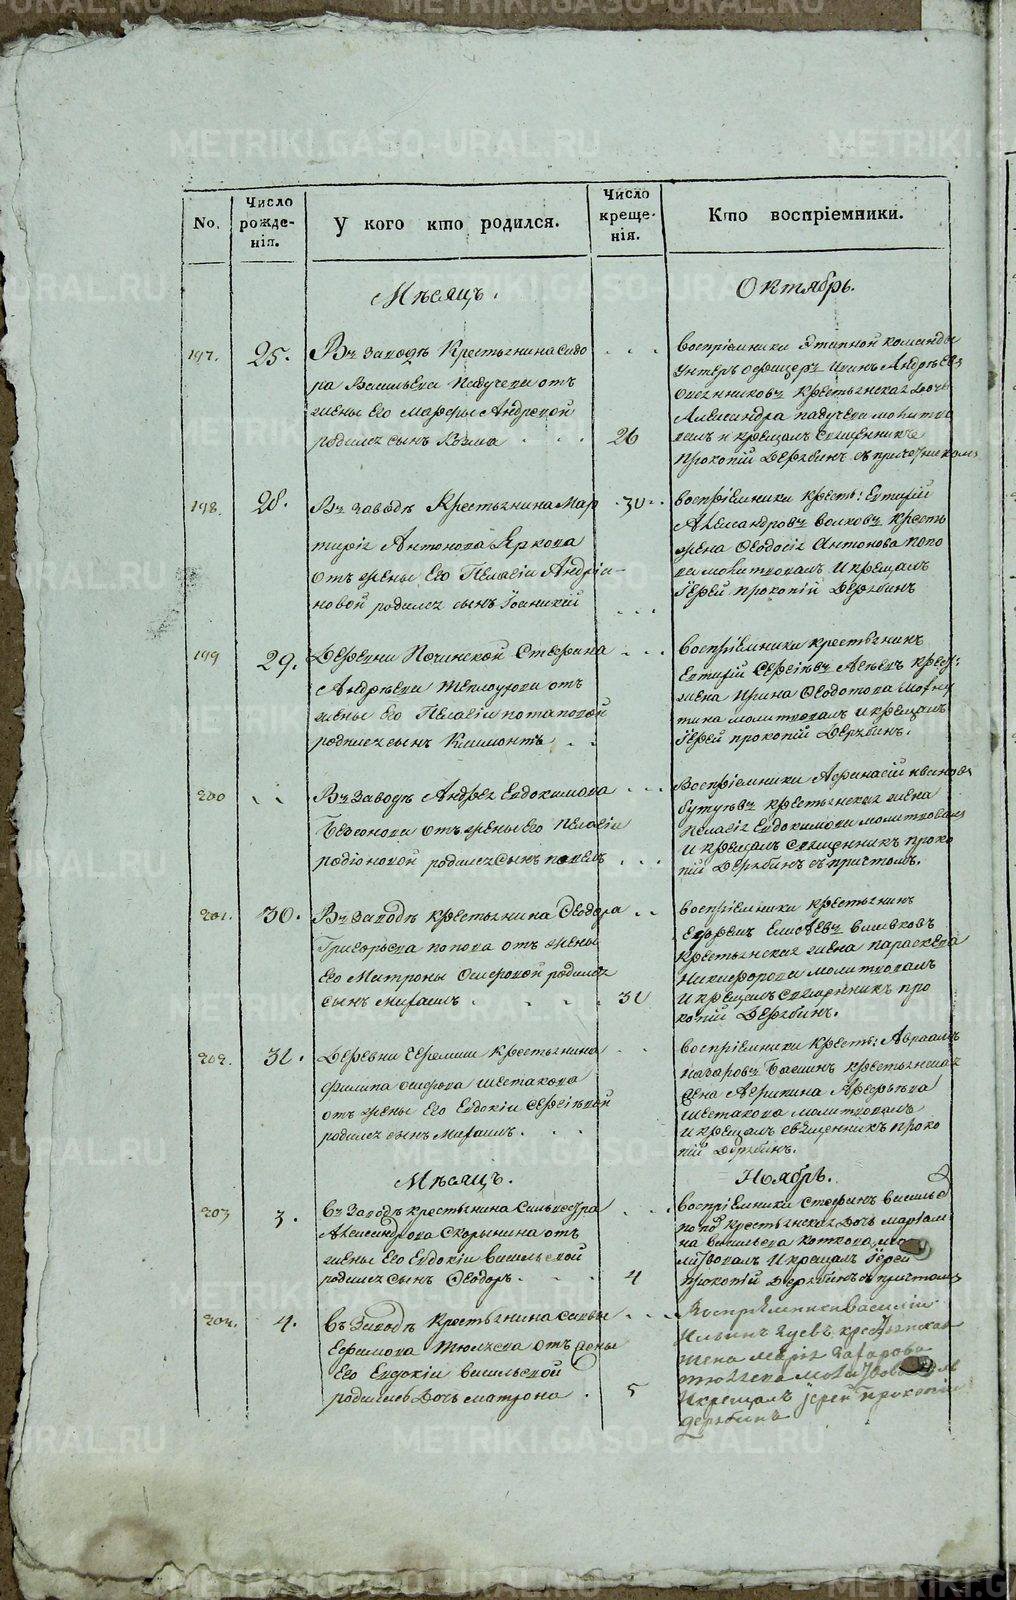 METRIKI.GASO-URAL.RU
No.
Число рожденія.
У кого кто родился.
Число крещенія.
Кто воспріемники.
Мѣсяцъ.
Октябрь.
197.
25.
Въ заводѣ Крестьянина Сидо
ра Васильева Падучева отъ
жены Его Марфы Андреевой
родился сынъ Козма
26
Воспріемники Этапной команды
Унтеръ офицеръ
крестьянская дочь
Александра Падучева молитво
валъ и крещалъ Священникъ
Прокопій Дерябинъ съ причетникомъ
198.
28.
Въ заводѣ Крестьянина Мар
тирія Антонова Яркова
Отъ жены Его Пелагіи Андріа-
новой родился сынъ Іоаникій
30
воспріемники крестья: Евтифій
Александровъ Волковъ крестья
жена Ѳеодосія Антонова Попо
ва молитвовалъ и крещалъ
Іерей прокопій Дерябинъ
199
29.
Деревни Починской Стефана
Андрѣева Теплоухова отъ
жены Его Пелагіи потаповой
родился сынъ Климонтъ
воспріемники крестьянинъ
Евтифій Сергѣевъ
жена Ирина Ѳеодотова
молитвовалъ и крещалъ
Іерей прокопій Дерябинъ.
200
Въ заводѣ Андрея Евдокимова
Безсонова отъ жены Его Пелагіи
родіоновой родился сынъ павелъ
Воспріемники Афанасій
крестьянская жена
Пелагія Евдокимова молитвовалъ
и крещалъ священникъ проко
пій Дерябинъ съ причтомъ.
201.
30.
Въ заводѣ крестьянина Ѳеодора
Григорьева попова отъ жены
Его Матроны Осиповой родился
сынъ Михаилъ
31
воспріемники крестьянинъ
Ефремъ Елисѣевъ
крестьянская жена параскева
Никифорова молитвовалъ
и крещалъ священникъ про
копій Дерябинъ.
202.
31.
Деревни Черемши крестьянина
Филипа осипова Шестакова
отъ жены Его Евдокіи Сергѣевой
родился сынъ Михаилъ.
воспріемники крестья: Авраамъ
назаровъ Басминъ крестьянская
жена Агрипина Арефьева
Шестакова молитвовалъ
и крещалъ священникъ проко
пій Дерябинъ.
Мѣсяцъ.
Ноябрь.
203
3.
Въ заводѣ крестьянина Сильвестра
Александрова Скорынина отъ
жены Его Евдокіи Васильевой
родился сынъ Ѳеодоръ.
4
воспріемники Стефанъ Васильевъ
попо крестьянская дочь Марѳами
на васильева Коткова мо
литвовалъ и крещалъ Іерей
прокопій Дерябинъ съ причтомъ
204.
4.
Въ заводѣ крестьянина Савы
Ефимова Тюляева отъ жены
Его Евдокіи васильевой
родилась дочь матрона
5
Воспріемники Василій
Ильинъ Гуевъ крестьянская
жена Марія Захарова
Тюляева молитвовалъ
и крещалъ іерей Прокопій
Дерябинъ